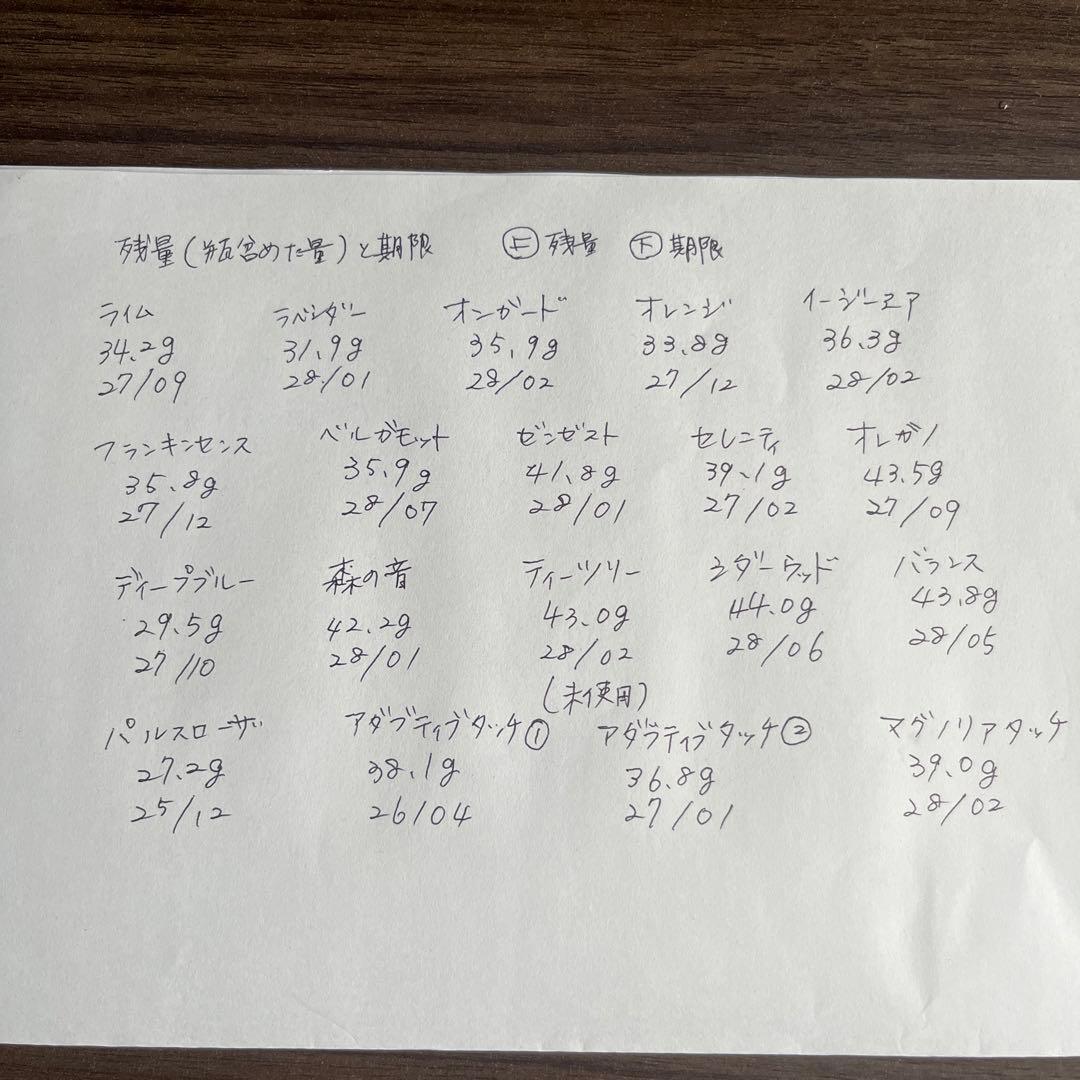 残量(瓶含めた量)と期限 ㊤残量 ㊦期限
ライム ラベンダー オンガード オレンジ イージーエア
34.2g 31.9g 35.9g 33.8g 36.3g
27/09 28/01 28/02 27/12 28/02
フランキンセンス ベルガモット ゼンゼスト セレニティ オレガノ
35.8g 35.9g 41.8g 39.1g 43.5g
27/12 28/07 28/01 27/02 27/09
ディープブルー 森の音 ティーツリー シダーウッド バランス
29.5g 42.2g 43.0g 44.0g 43.8g
27/10 28/01 28/02 28/06 28/05
(未使用)
パルスローザ アダプティブタッチ① アダプティブタッチ② マグノリアタッチ
27.2g 38.1g 36.8g 39.0g
25/12 26/04 27/01 28/02